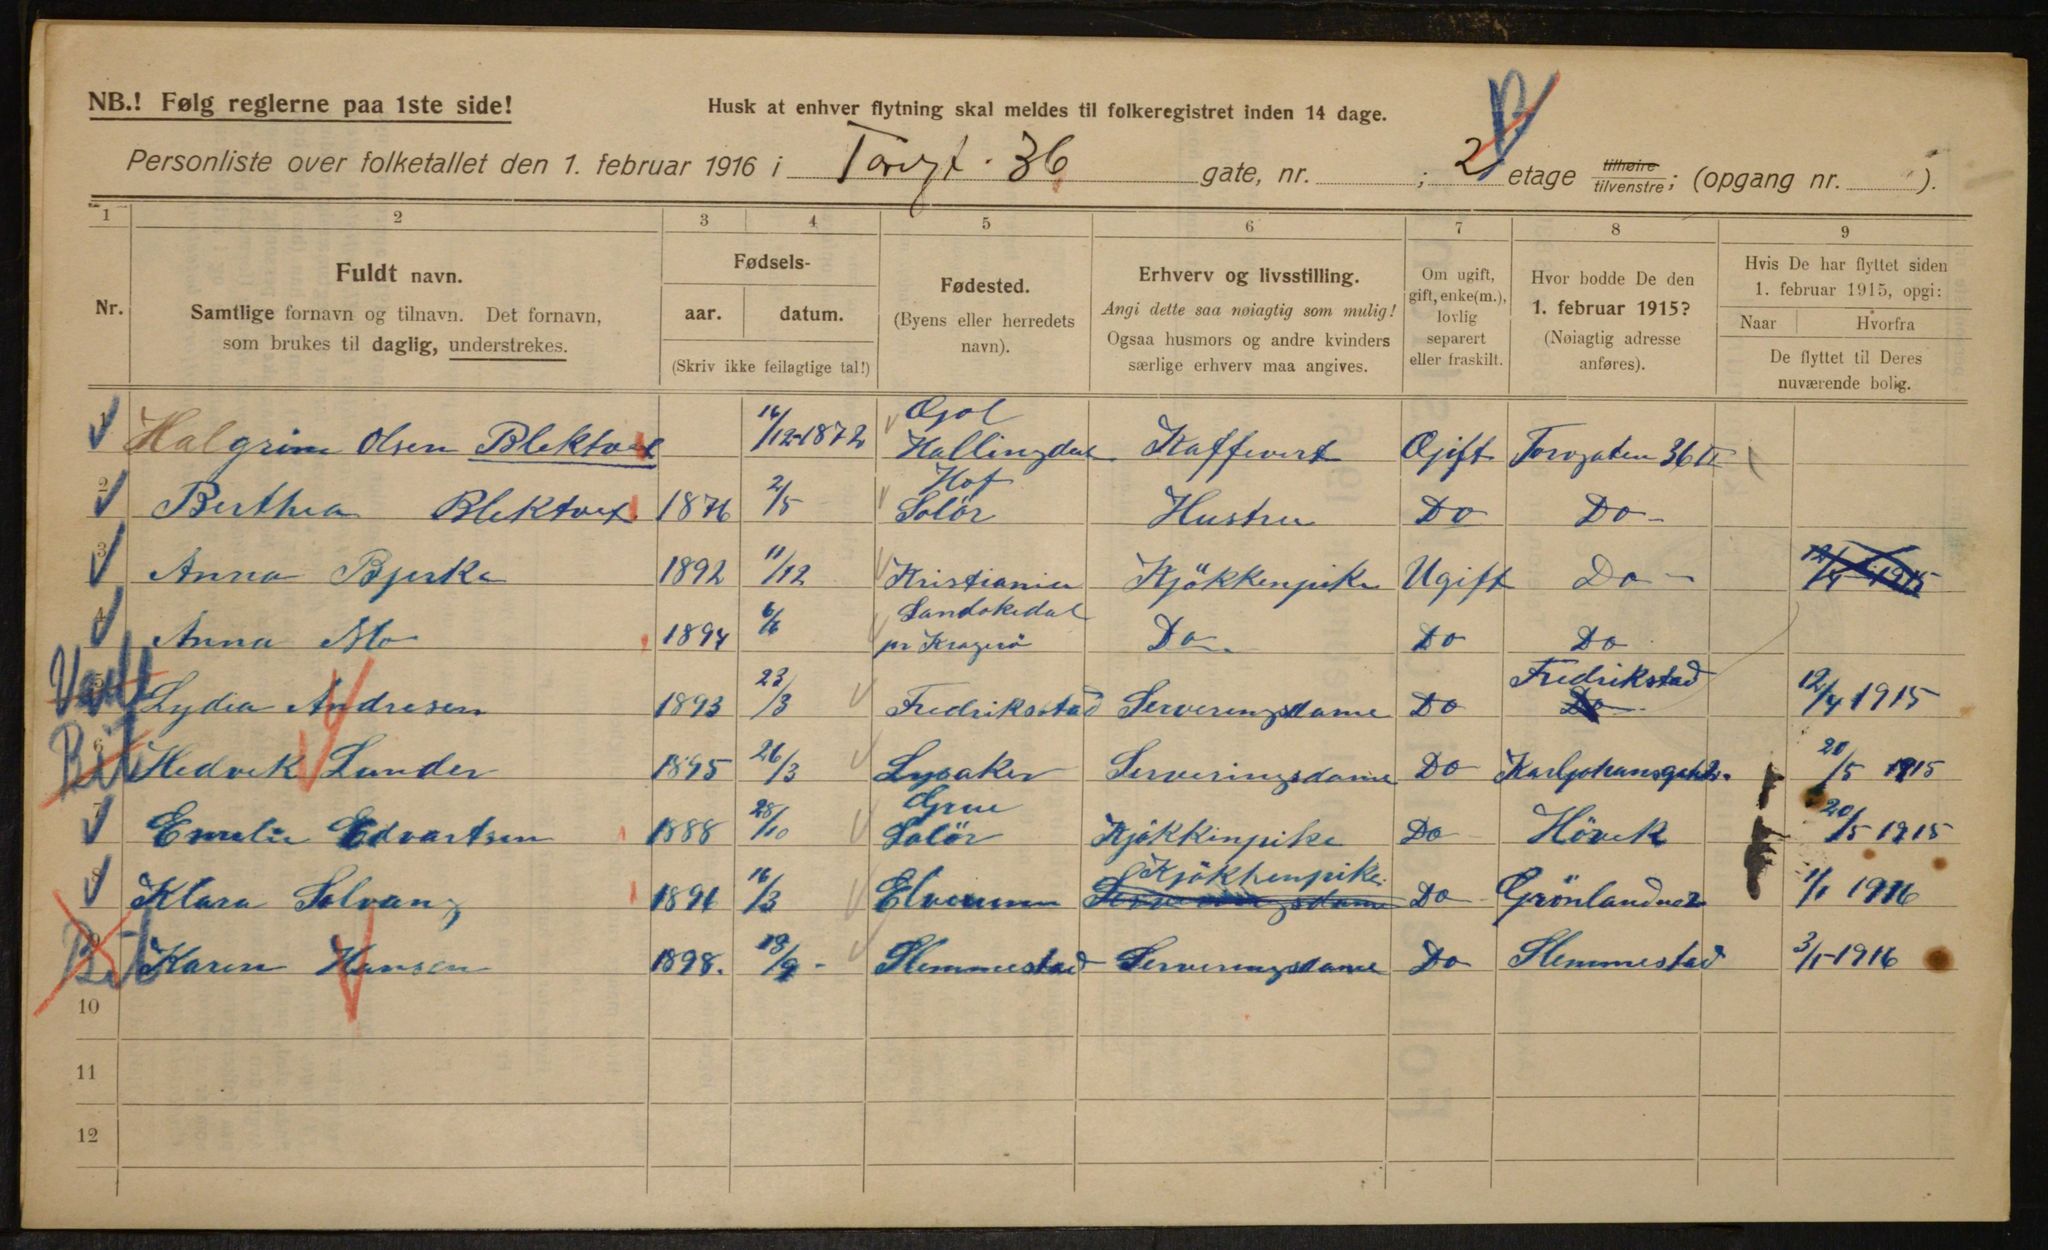 NB.! Følg reglerne paa 1ste side!
Husk at enhver flytning skal meldes til folkeregistret inden 14 dage.
Personliste over folketallet den 1. februar 1916 i Torvgt. 36 gate, nr. ; 2 etage tilhøire tilvenstre; (opgang nr. ).
1 2 3 4 5 6 7 8 9
Nr.
Fuldt navn.
Samtlige fornavn og tilnavn. Det fornavn,
som brukes til daglig, understrekes.
Fødsels-
aar. datum.
(Skriv ikke feilagtige tal!)
Fødested.
(Byens eller herredets
navn).
Erhverv og livsstilling.
Angi dette saa nøiagtig som mulig!
Ogsaa husmors og andre kvinders
særlige erhverv maa angives.
Om ugift,
gift, enke(m.),
lovlig
separert
eller fraskilt.
Hvor bodde De den
1. februar 1915?
(Nøiagtig adresse
anføres).
Hvis De har flyttet siden
1. februar 1915, opgi:
Naar Hvorfra
De flyttet til Deres
nuværende bolig.
1 Halgrim Olsen Blektvet 16/12-1872 Gol Hallingdal Kaffevert Gift Torvgaten 36 II
2 Berthea Blektvet 1876 2/5 Hof Solör Hustru Do Do
3 Anna Bjerke 1892 11/12 Kristiania Kjökkenpike Ugift Do 12/4 1915
4 Anna Mo 1894 6/6 Sandökedal pr Kragerö Do Do Do
5 Lydia Andresen 1893 23/3 Fredriksstad Serveringsdame Do Fredrikstad Do 12/4 1915
6 Hedvik Lunder 1895 26/3 Lysaker Serveringsdame Do Karljohansgt 2. 20/5 1915
7 Emelie Edvartsen 1888 28/10 Grue Solör Kjökkinpike Do Hövik 20/5 1915
8 Klara Solvang 1891 16/3 Elverum Kjökkenpike Serveringsdame Do Grönland 1/1 1916
9 Karen Hansen 1898. 18/9 Slemmestad Serveringsdame Do Slemmestad 3/1-1916
10
11
12